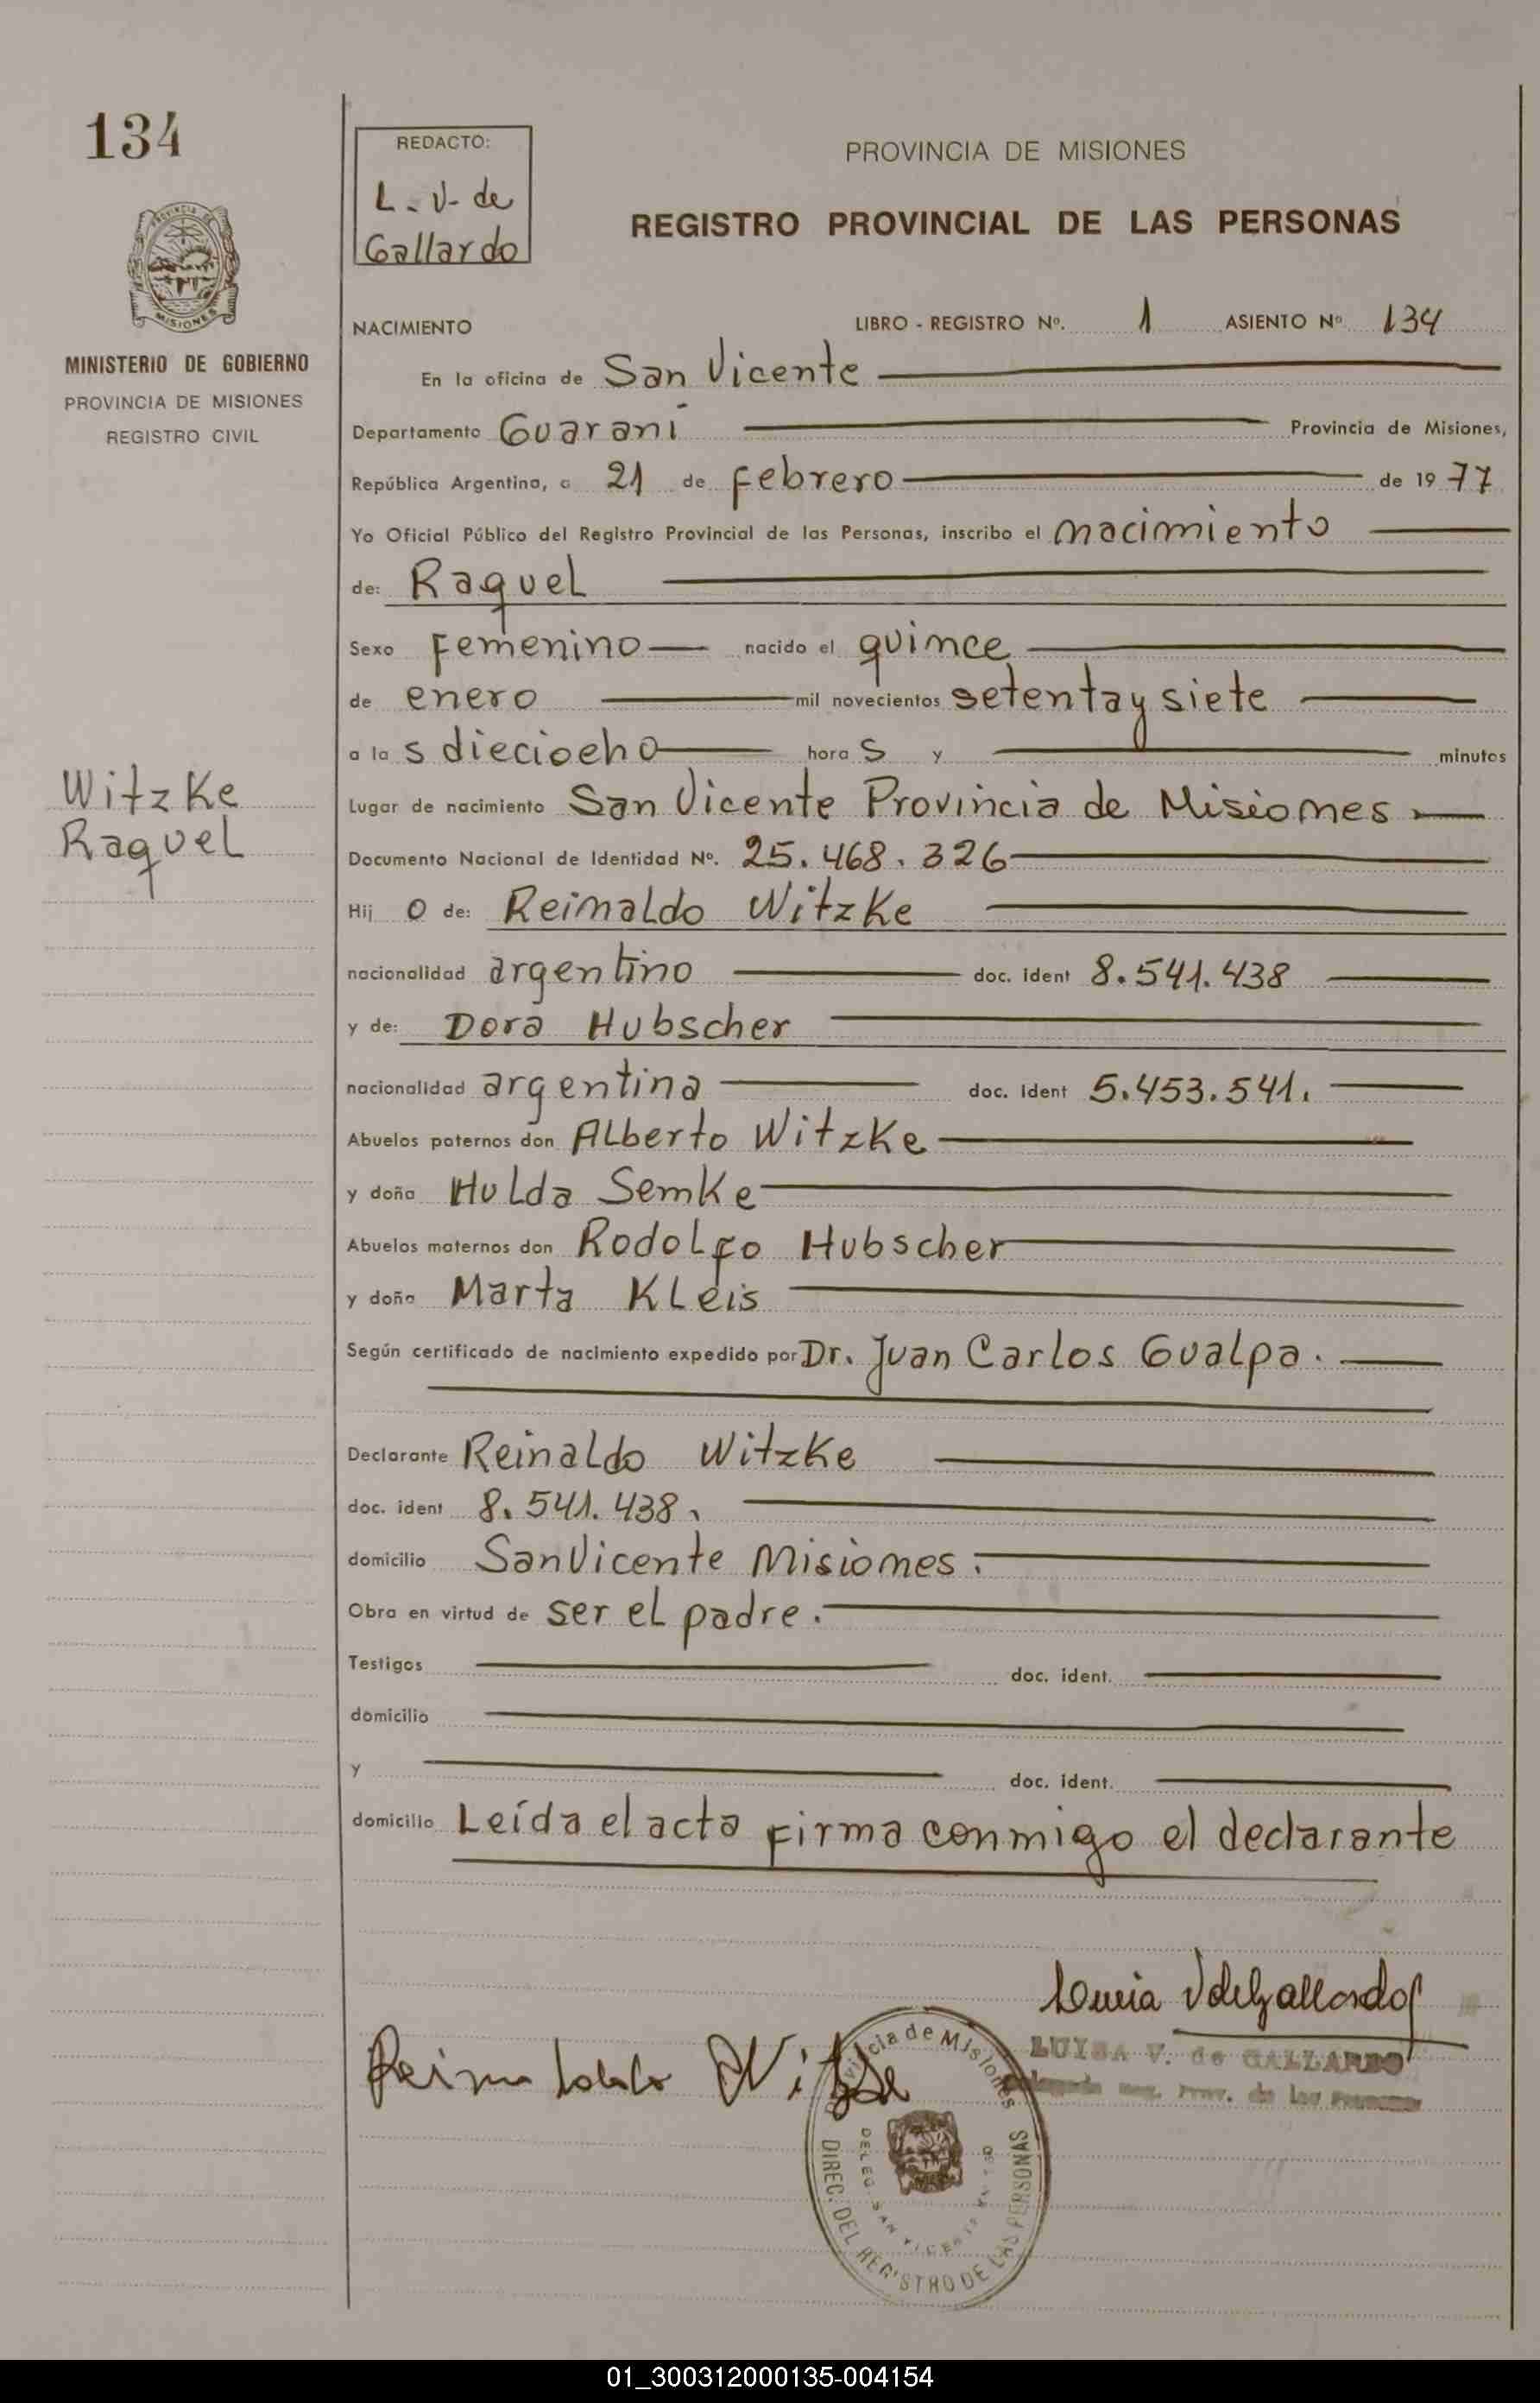 134
REDACTO:
L. V. de
Gallardo
PROVINCIA DE MISIONES
REGISTRO PROVINCIAL DE LAS PERSONAS
PROVINCIA DE
MISIONES
MINISTERIO DE GOBIERNO
PROVINCIA DE MISIONES
REGISTRO CIVIL
NACIMIENTO LIBRO - REGISTRO Nº. 1 ASIENTO Nº 134
En la oficina de San Vicente
Departamento Guaraní Provincia de Misiones,
República Argentina, a 21 de febrero de 19 77
Yo Oficial Público del Registro Provincial de las Personas, inscribo el nacimiento
de: Raquel
Sexo femenino nacido el quince
de enero mil novecientos setenta y siete
a la s dieciocho hora s y minutos
Witzke
Raquel
Lugar de nacimiento San Vicente Provincia de Misiones
Documento Nacional de Identidad Nº. 25.468.326
Hij o de: Reinaldo Witzke
nacionalidad argentino doc. ident 8.541.438
y de: Dora Hubscher
nacionalidad argentina doc. ident 5.453.541.
Abuelos paternos don Alberto Witzke
y doña Hulda Semke
Abuelos maternos don Rodolfo Hubscher
y doña Marta Kleis
Según certificado de nacimiento expedido por Dr. Juan Carlos Gualpa.
Declarante Reinaldo Witzke
doc. ident 8.541.438.
domicilio San Vicente Misiones.
Obra en virtud de ser el padre.
Testigos doc. ident.
domicilio
y doc. ident.
domicilio Leída el acta firma conmigo el declarante
V de Gallardo
LUISA V. de GALLARDO
Reinaldo Witzke
Provincia de Misiones
DIREC. DEL REGISTRO DE LAS PERSONAS
DELEG. SAN VICENTE
01_300312000135-004154